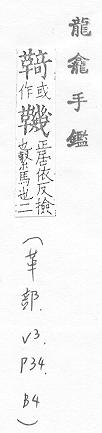 龍龕手鑑
䩭或作鞿正居依反檢
也繫馬也二
(革部. V3. P34. B4)